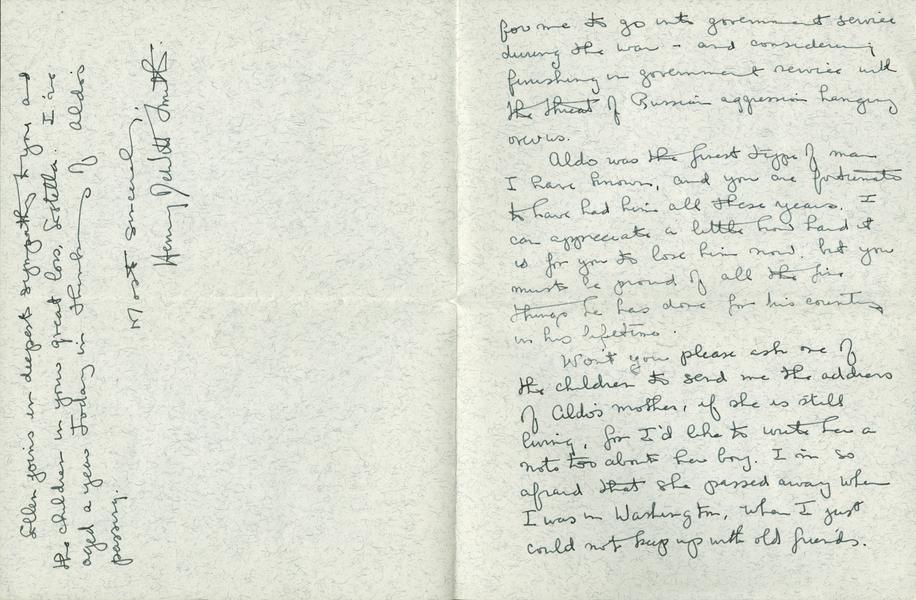 for me to go into government service
during the war - and considering
finishing in government service with
the threat of Russian aggression hanging
over us.
Aldo was the finest type of man
I have known, and you are fortunate
to have had him all these years. I
can appreciate a little how hard it
is for you to lose him now, but you
must be proud of all the fine
things he has done for his country
in his lifetime.
Won't you please ask one of
the children to send me the address
of Aldo's mother, if she is still
living, for I'd like to write her a
note too about her boy. I'm so
afraid that she passed away when
I was in Washington, when I just
could not keep up with old friends.
Ellen joins in deepest sympathy to you and
the children in your great loss, Estella. I've
aged a year today in thinking of Aldo's
passing.
Most sincerely,
Henry DeWitt Smith.